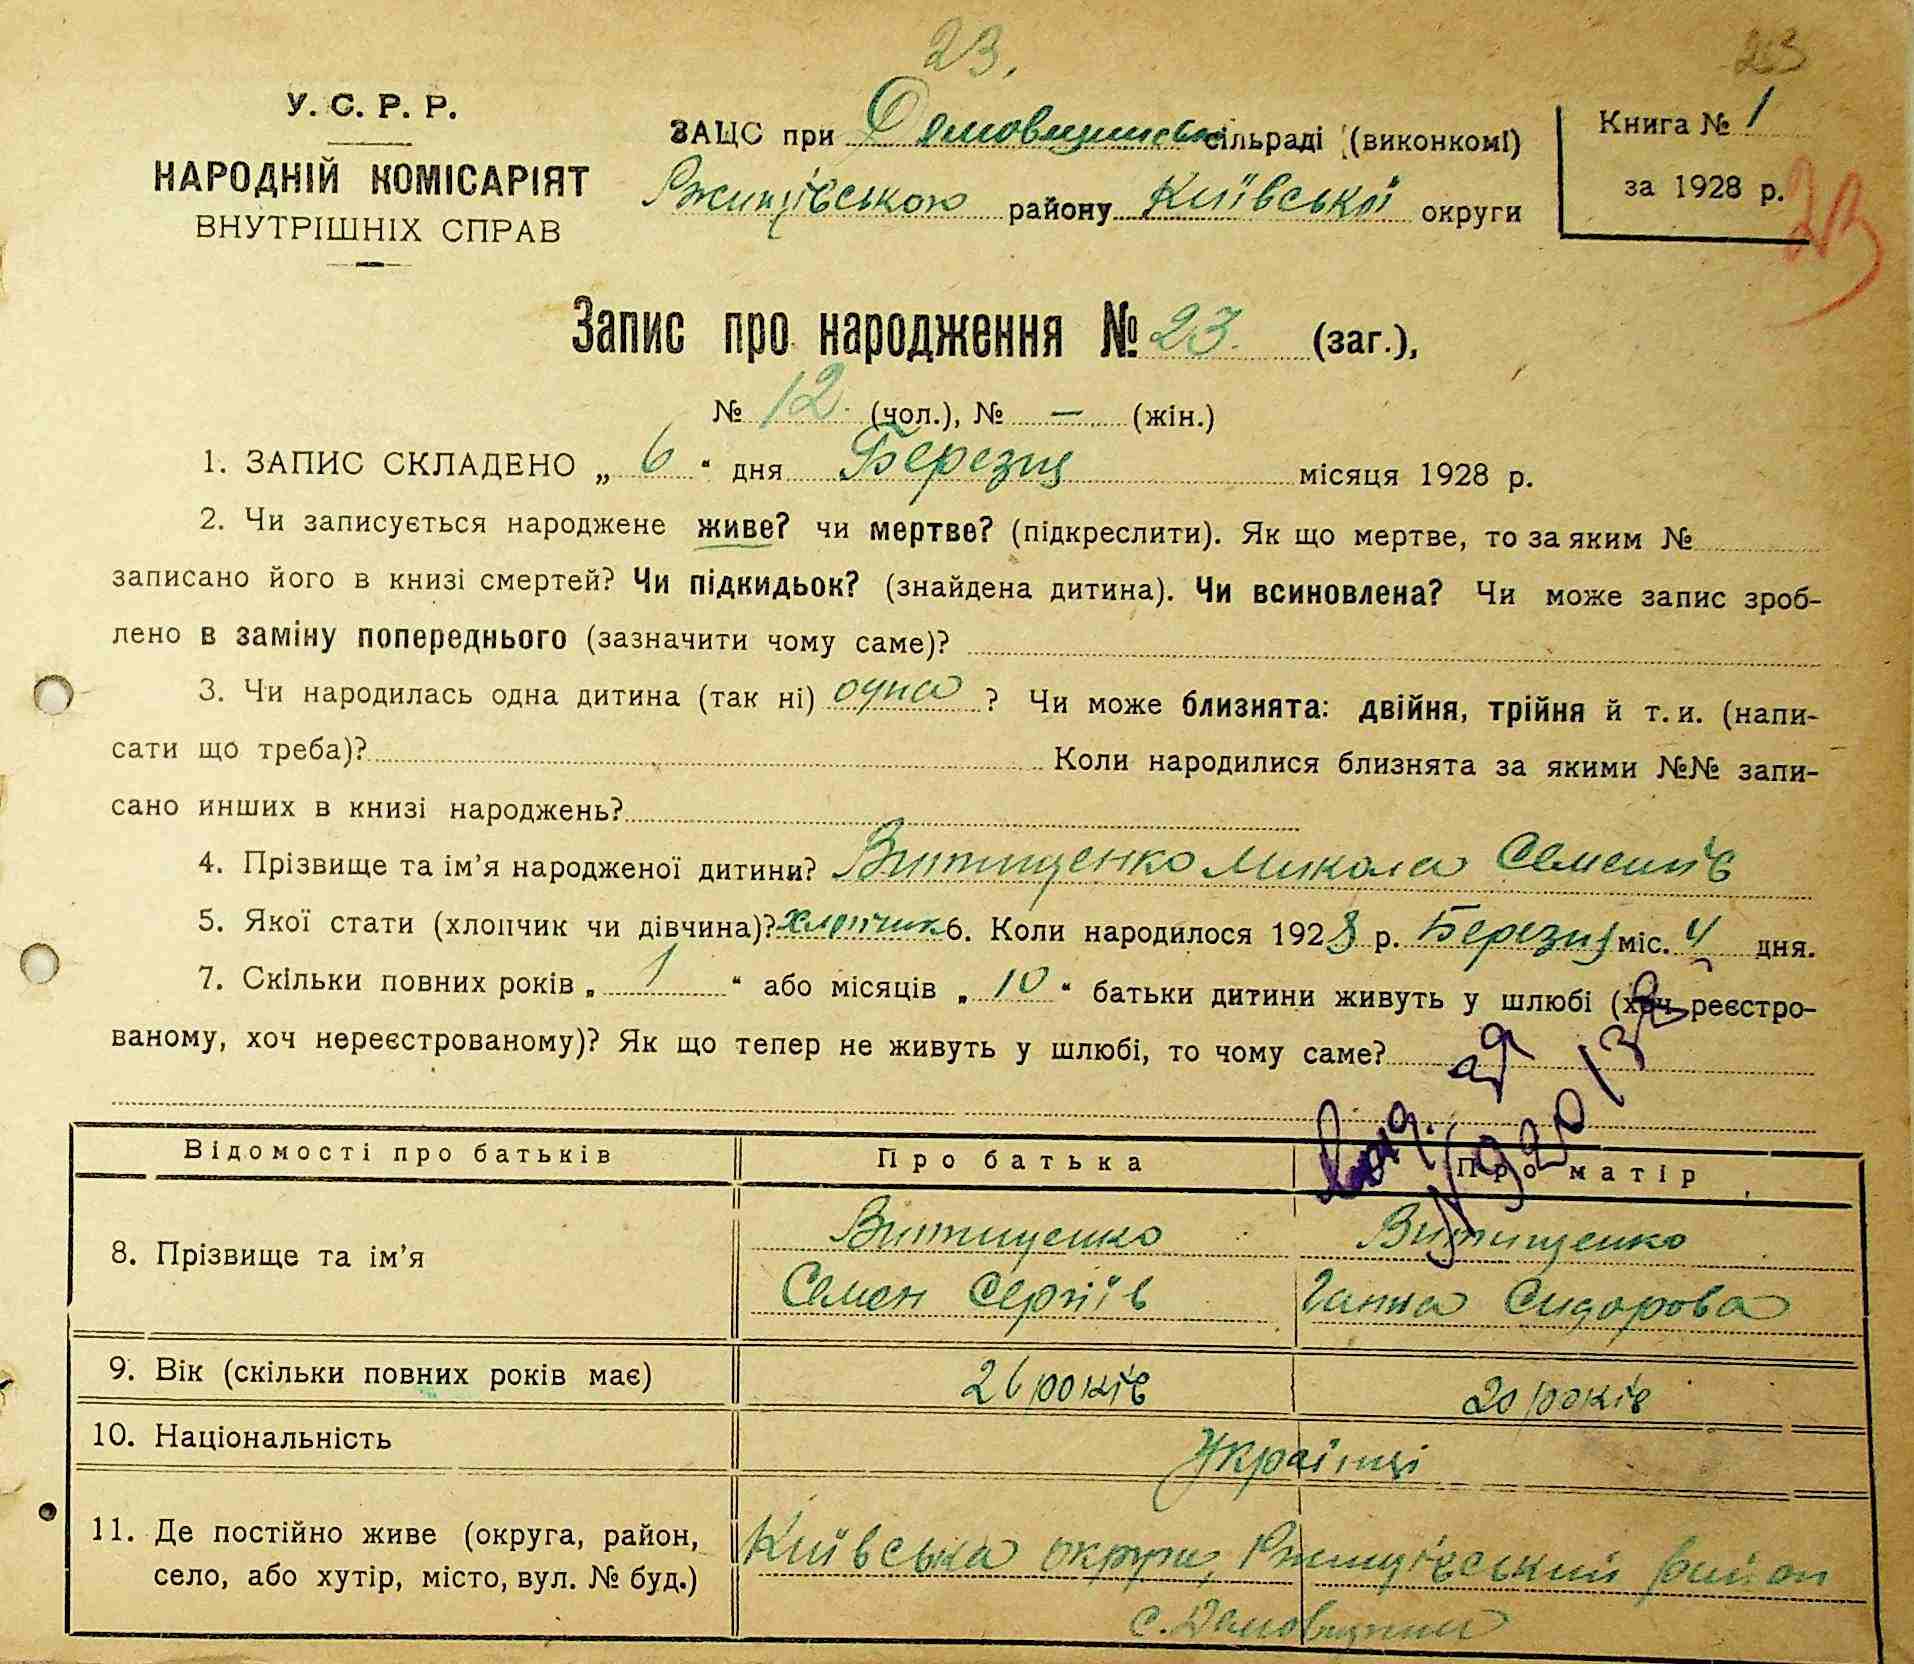 23.
23
У. С. Р. Р.
НАРОДНІЙ КОМІСАРІЯТ
ВНУТРІШНІХ СПРАВ
ЗАЦС при Демовщинській сільраді (виконкомі)
Ржищівською району Київської округи
Книга № 1
за 1928 р.
23
Запис про народження № 23. (заг.),
№ 12. (чол.), № — (жін.)
1. ЗАПИС СКЛАДЕНО „ 6 “ дня Березня місяця 1928 р.
2. Чи записується народжене живе? чи мертве? (підкреслити). Як що мертве, то за яким №
записано його в книзі смертей? Чи підкидьок? (знайдена дитина). Чи всиновлена? Чи може запис зроб-
лено в заміну попереднього (зазначити чому саме)?
3. Чи народилась одна дитина (так ні) одна ? Чи може близнята: двійня, трійня й т. и. (напи-
сати що треба)? Коли народилися близнята за якими №№ запи-
сано инших в книзі народжень?
4. Прізвище та ім’я народженої дитини? Витищенко Микола Семенів
5. Якої стати (хлопчик чи дівчина)? хлопчик 6. Коли народилося 1928 р. Березня міс. 4 дня.
7. Скільки повних років „ 1 “ або місяців „ 10 “ батьки дитини живуть у шлюбі (хоч реєстро-
ваному, хоч нереєстрованому)? Як що тепер не живуть у шлюбі, то чому саме?
Відомості про батьків Про батька Про матір
8. Прізвище та ім’я Витищенко Витищенко
Семен Сергіїв Ганна Сидорова
9. Вік (скільки повних років має) 26 років 20 років
10. Національність Українці
11. Де постійно живе (округа, район, Київська округи, Ржищівський район
село, або хутір, місто, вул. № буд.) с. Демовщини